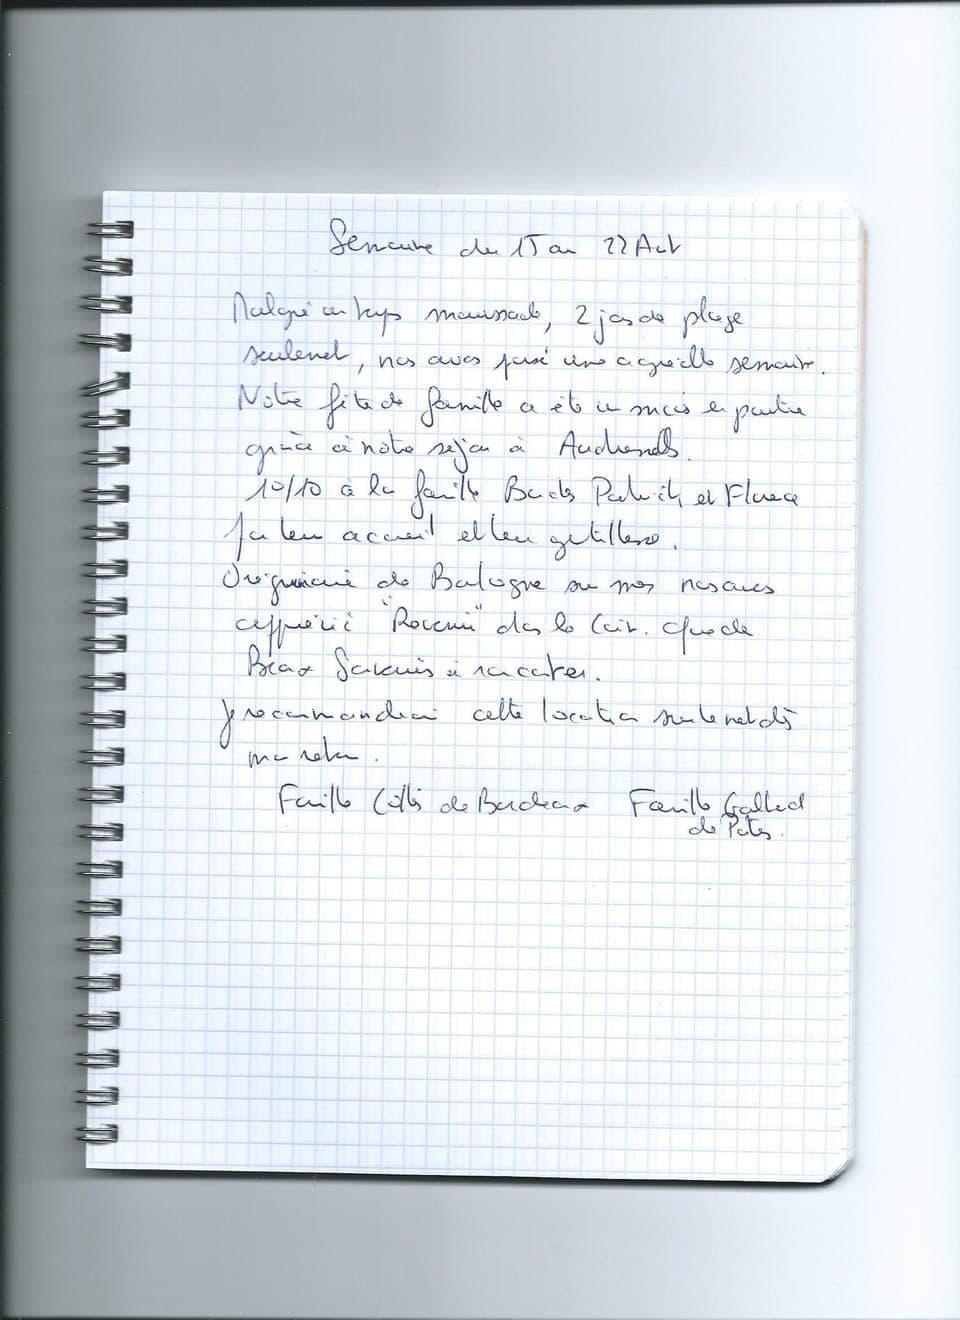 Semaine du 15 au 22 Aout
Malgré un temps maussade, 2 jours de plage
seulement, nous avons passé une agréable semaine.
Notre fête de famille a été un succès en partie
grâce à notre séjour à
10/10 à la famille Patrick et Florence
pour leur accueil et leur gentillesse.
Originaire de nous nous avons
apprécié "Revenir" dans le coin. Que de
Beaux Souvenirs à raconter.
Je recommanderai cette location sur le net dès
mon retour.
Famille de Bordeaux Famille
de